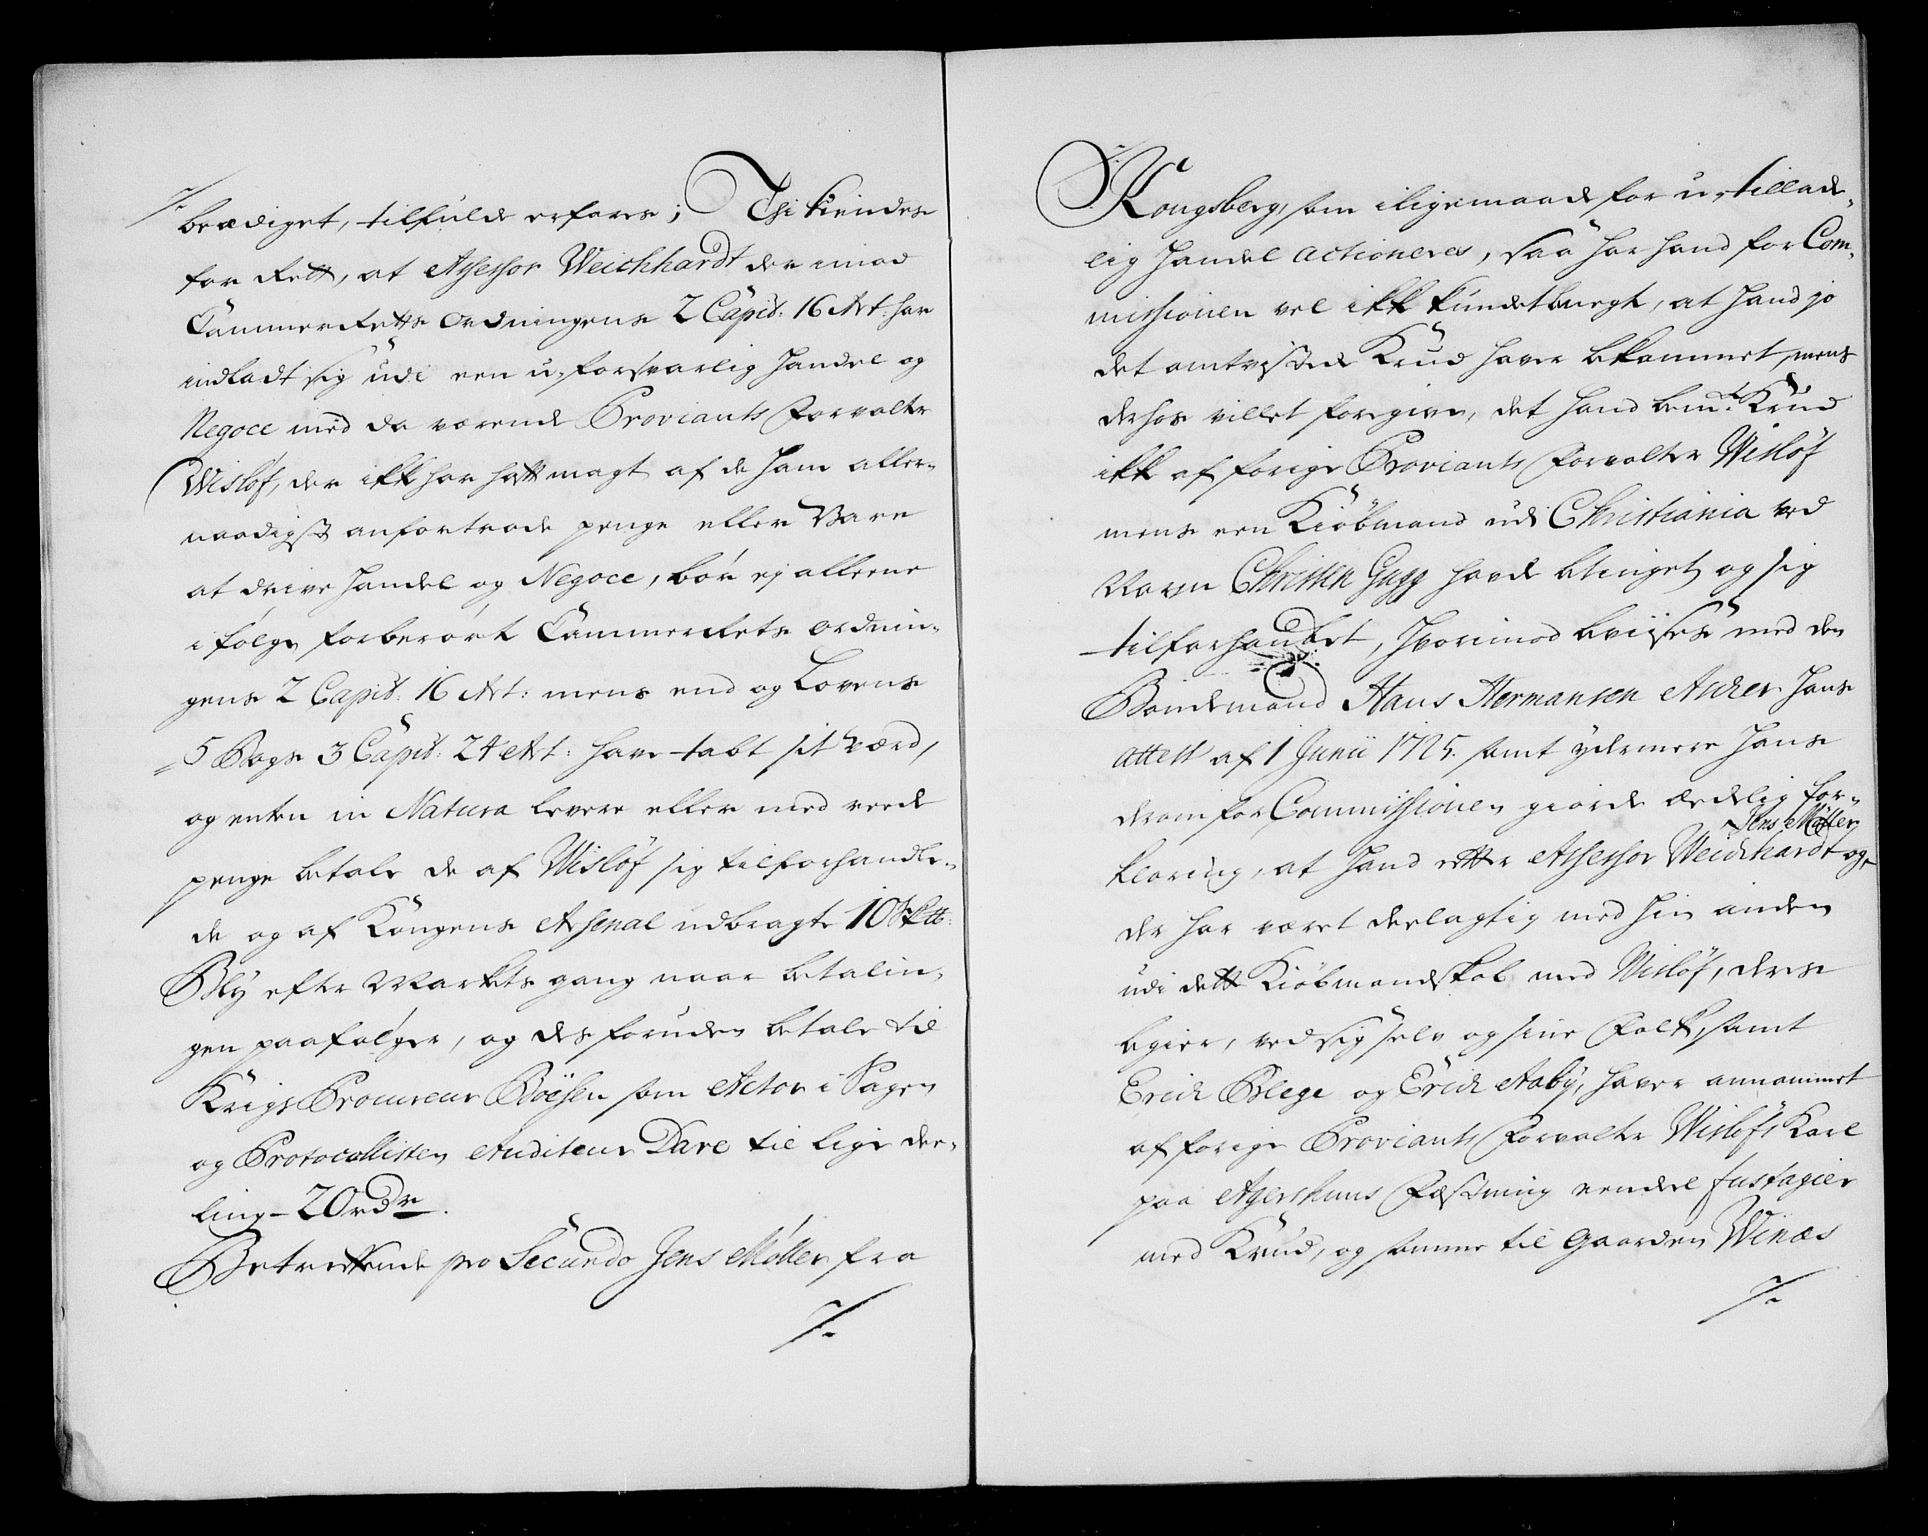 beædiget, tilfulde erfares; Thi kiendes
for Rett, at Assessor Weichhardt der imod
Cammer Retts Ordningens 2 Capit: 16 Art: har
indladt sig udi een u-forsvarlig Handel og
Negoce med da værende Proviants Forvalter
Wisløf, der ikke har hatt magt af de ham aller-
naadigst anfortrode penge eller Vare
at drive Handel og Negoce, bør ej alleene
i følge forberørt Cammer Rets Ordnin-
gens 2 Capit: 16 Art: mens end og Lovens
5 Bogs 3 Capit: 24 Art: have tabt sit værd,
og enten in Natura levere eller med reede
penge betale de af Wisløf sig tilforhandle-
de og af Kongens Arsenal udbragte 10 Sk℔:
Bly efter Markets gang naar betalin-
gen paafølger, og des foruden betale til
Krigs Procureur Boesen som Actor i Sagen
og Protocollisten Auditeur Dare til lige dee-
ling 20 rdr.
Betreffende pro Secundo Jens Møller fra
Kongsberg, som iligemaade for u-tillade-
lig Handel actioneres, saa har hand for Com-
missionen vel ikke kundet benegte, at hand jo
det omtvistede Krud haver bekommet, mens
derhos villet foregive, det hand bemt. Krud
ikke af forige Proviants Forvalter Wisløf
mens een Kiøbmand udi Christiania ved
Navn Christen Gagg havde betinget og sig
tilforhandlet, hvorimod bevises med den
Bondemand Hans Hermansen Ancher hans
attest af 1 Junii 1725. samt ydermere hans
derom for Commissionen giorde æedelig for-
klaring, at hand effter Assessor Weichardt og
Jens Møller
der har været deelagtig med hin anden
udi dette Kiøbmandskab med Wisløf, deres
begier, ved sig selv og sine Folk, samt
Erich Blege og Erich Aaby, haver annammet
af forige Proviants Forvalter Wisløfs Karl
paa Agershuus Fæstning eendeel fustagier
med Krud, og samme til Gaarden Winæs